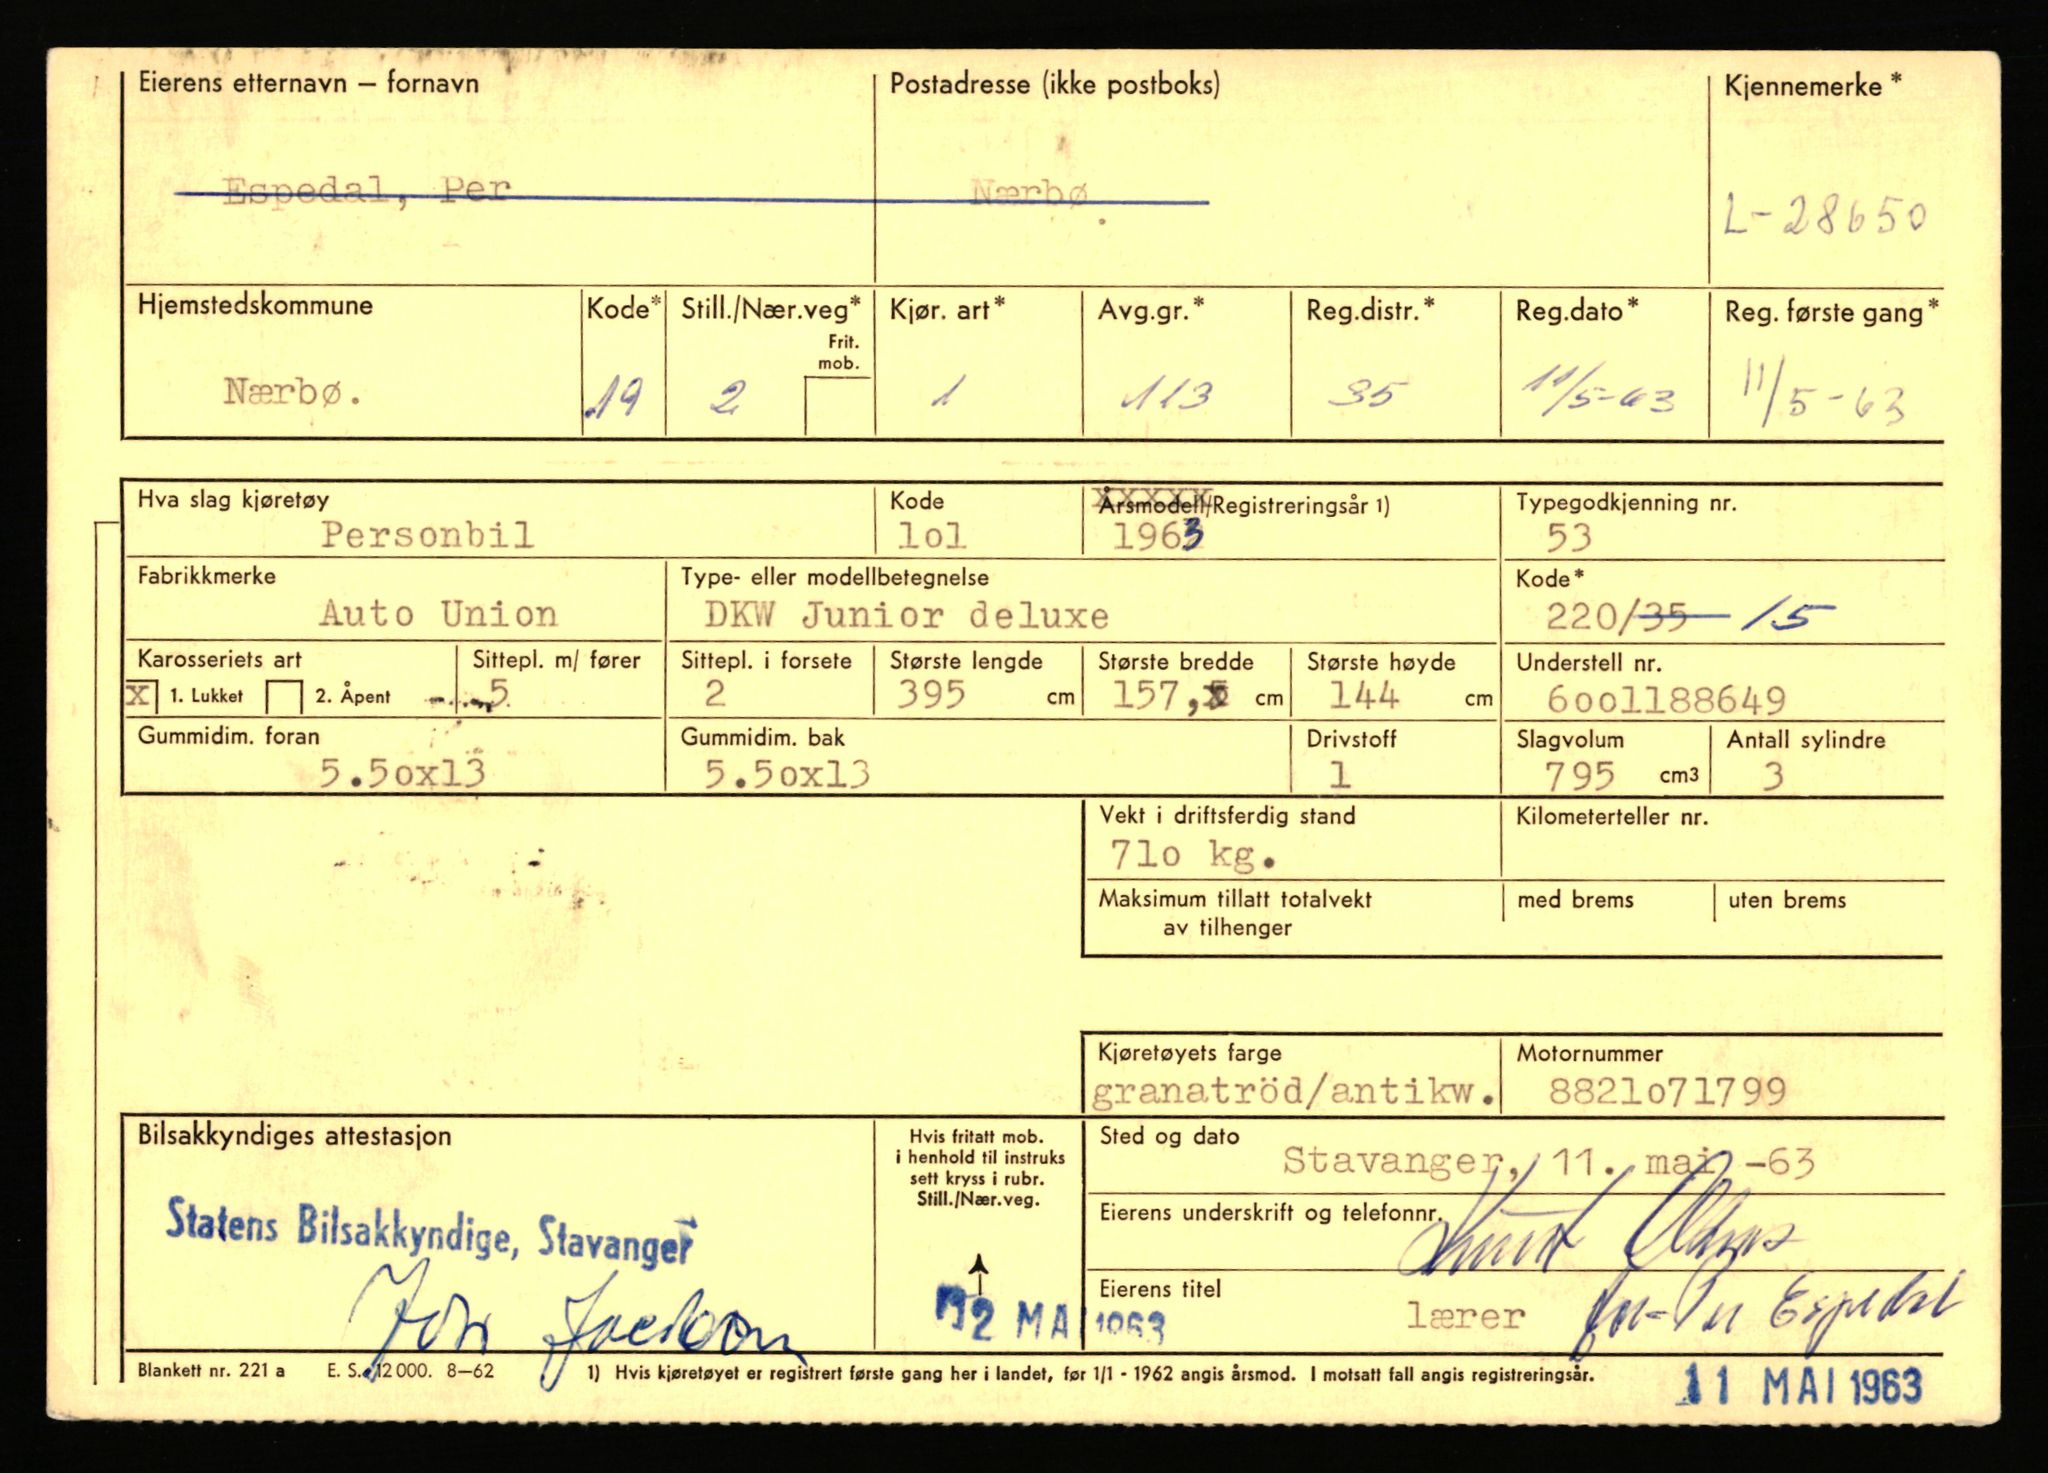 Eierens etternavn – fornavn Postadresse (ikke postboks) Kjennemerke*
Espedal, Per Nærbø. L-28650
Hjemstedskommune Kode* Still./Nær.veg* Kjør. art* Avg.gr.* Reg.distr.* Reg.dato* Reg. første gang*
Frit.
mob.
Nærbø. 19 2 1 113 35 11/5-63 11/5-63
Hva slag kjøretøy Kode Årsmodell/Registreringsår 1) Typegodkjenning nr.
Personbil lol 1963 53
Fabrikkmerke Type- eller modellbetegnelse Kode*
Auto Union DKW Junior deluxe 220/35 15
Karosseriets art Sittepl. m/ fører Sittepl. i forsete Største lengde Største bredde Største høyde Understell nr.
X 1. Lukket 2. Åpent 5 2 395 cm 157, cm 144 cm 6oo1188649
Gummidim. foran Gummidim. bak Drivstoff Slagvolum Antall sylindre
5.5ox13 5.5ox13 1 795 cm3 3
Vekt i driftsferdig stand Kilometerteller nr.
71o kg.
Maksimum tillatt totalvekt med brems uten brems
av tilhenger
Kjøretøyets farge Motornummer
granatröd/antikw. 8821o71799
Bilsakkyndiges attestasjon Hvis fritatt mob. Sted og dato
i henhold til instruks
sett kryss i rubr.
Still./Nær.veg.
Stavanger, 11. mai -63
Statens Bilsakkyndige, Stavanger
Eierens underskrift og telefonnr.
Eierens titel
lærer Espedal
12 MAI 1963
Blankett nr. 221 a E. S. 12000. 8–62 1) Hvis kjøretøyet er registrert første gang her i landet, før 1/1 - 1962 angis årsmod. I motsatt fall angis registreringsår.
11 MAI 1963